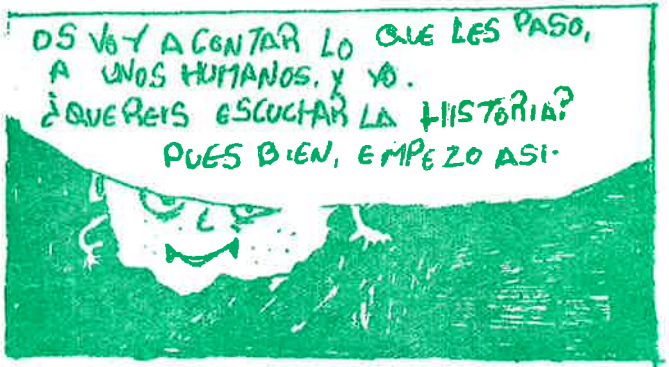 OS VOY A CONTAR LO QUE LES PASO,
A UNOS HUMANOS. Y YO.
¿QUEREIS ESCUCHAR LA HISTORIA?
PUES BIEN, EMPEZO ASI.